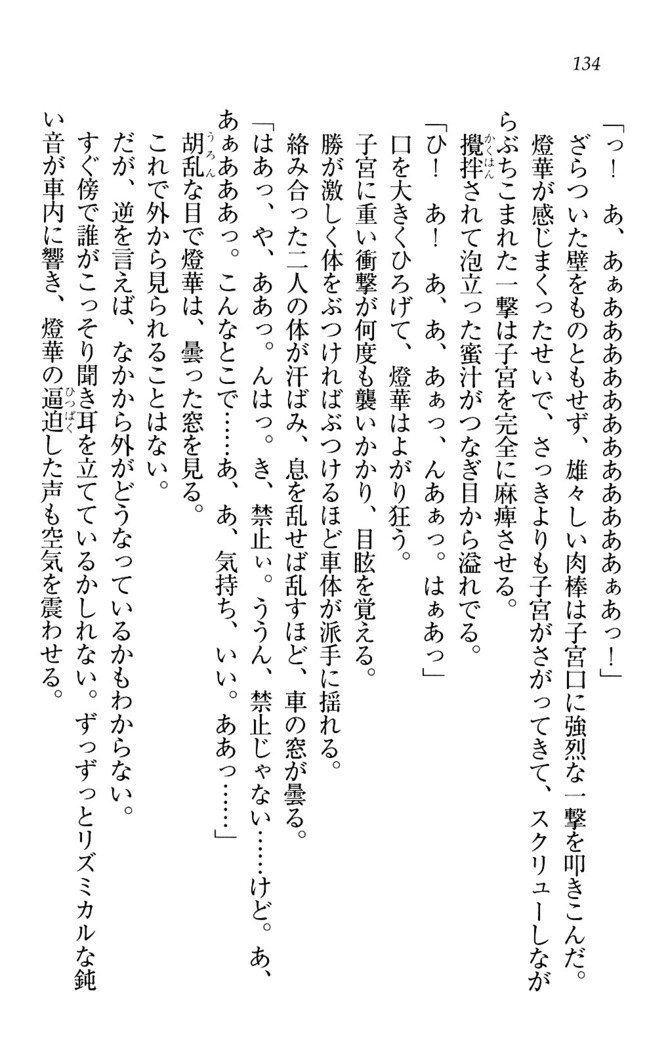 134
「っ！　あ、あぁあああああああああああああぁあっ！」
ざらついた壁をものともせず、雄々しい肉棒は子宮口に強烈な一撃を叩きこんだ。
燈華が感じまくったせいで、さっきよりも子宮がさがってきて、スクリューしなが
らぶちこまれた一撃は子宮を完全に麻痺させる。
攪拌されて泡立った蜜汁がつなぎ目から溢れでる。
「ひ！　あ！　あ、あ、あぁっ、んあぁっ。はぁあっ」
口を大きくひろげて、燈華はよがり狂う。
子宮に重い衝撃が何度も襲いかかり、目眩を覚える。
勝が激しく体をぶつければぶつけるほど車体が派手に揺れる。
絡み合った二人の体が汗ばみ、息を乱せば乱すほど、車の窓が曇る。
「はあっ、や、ああっ。んはっ。き、禁止ぃ。ううん、禁止じゃない……けど。あ、
あぁあああっ。こんなとこで……あ、あ、気持ち、いい。ああっ……」
胡乱な目で燈華は、曇った窓を見る。
これで外から見られることはない。
だが、逆を言えば、なかから外がどうなっているかもわからない。
すぐ傍で誰がこっそり聞き耳を立てているかしれない。ずっずっとリズミカルな鈍
い音が車内に響き、燈華の逼迫した声も空気を震わせる。